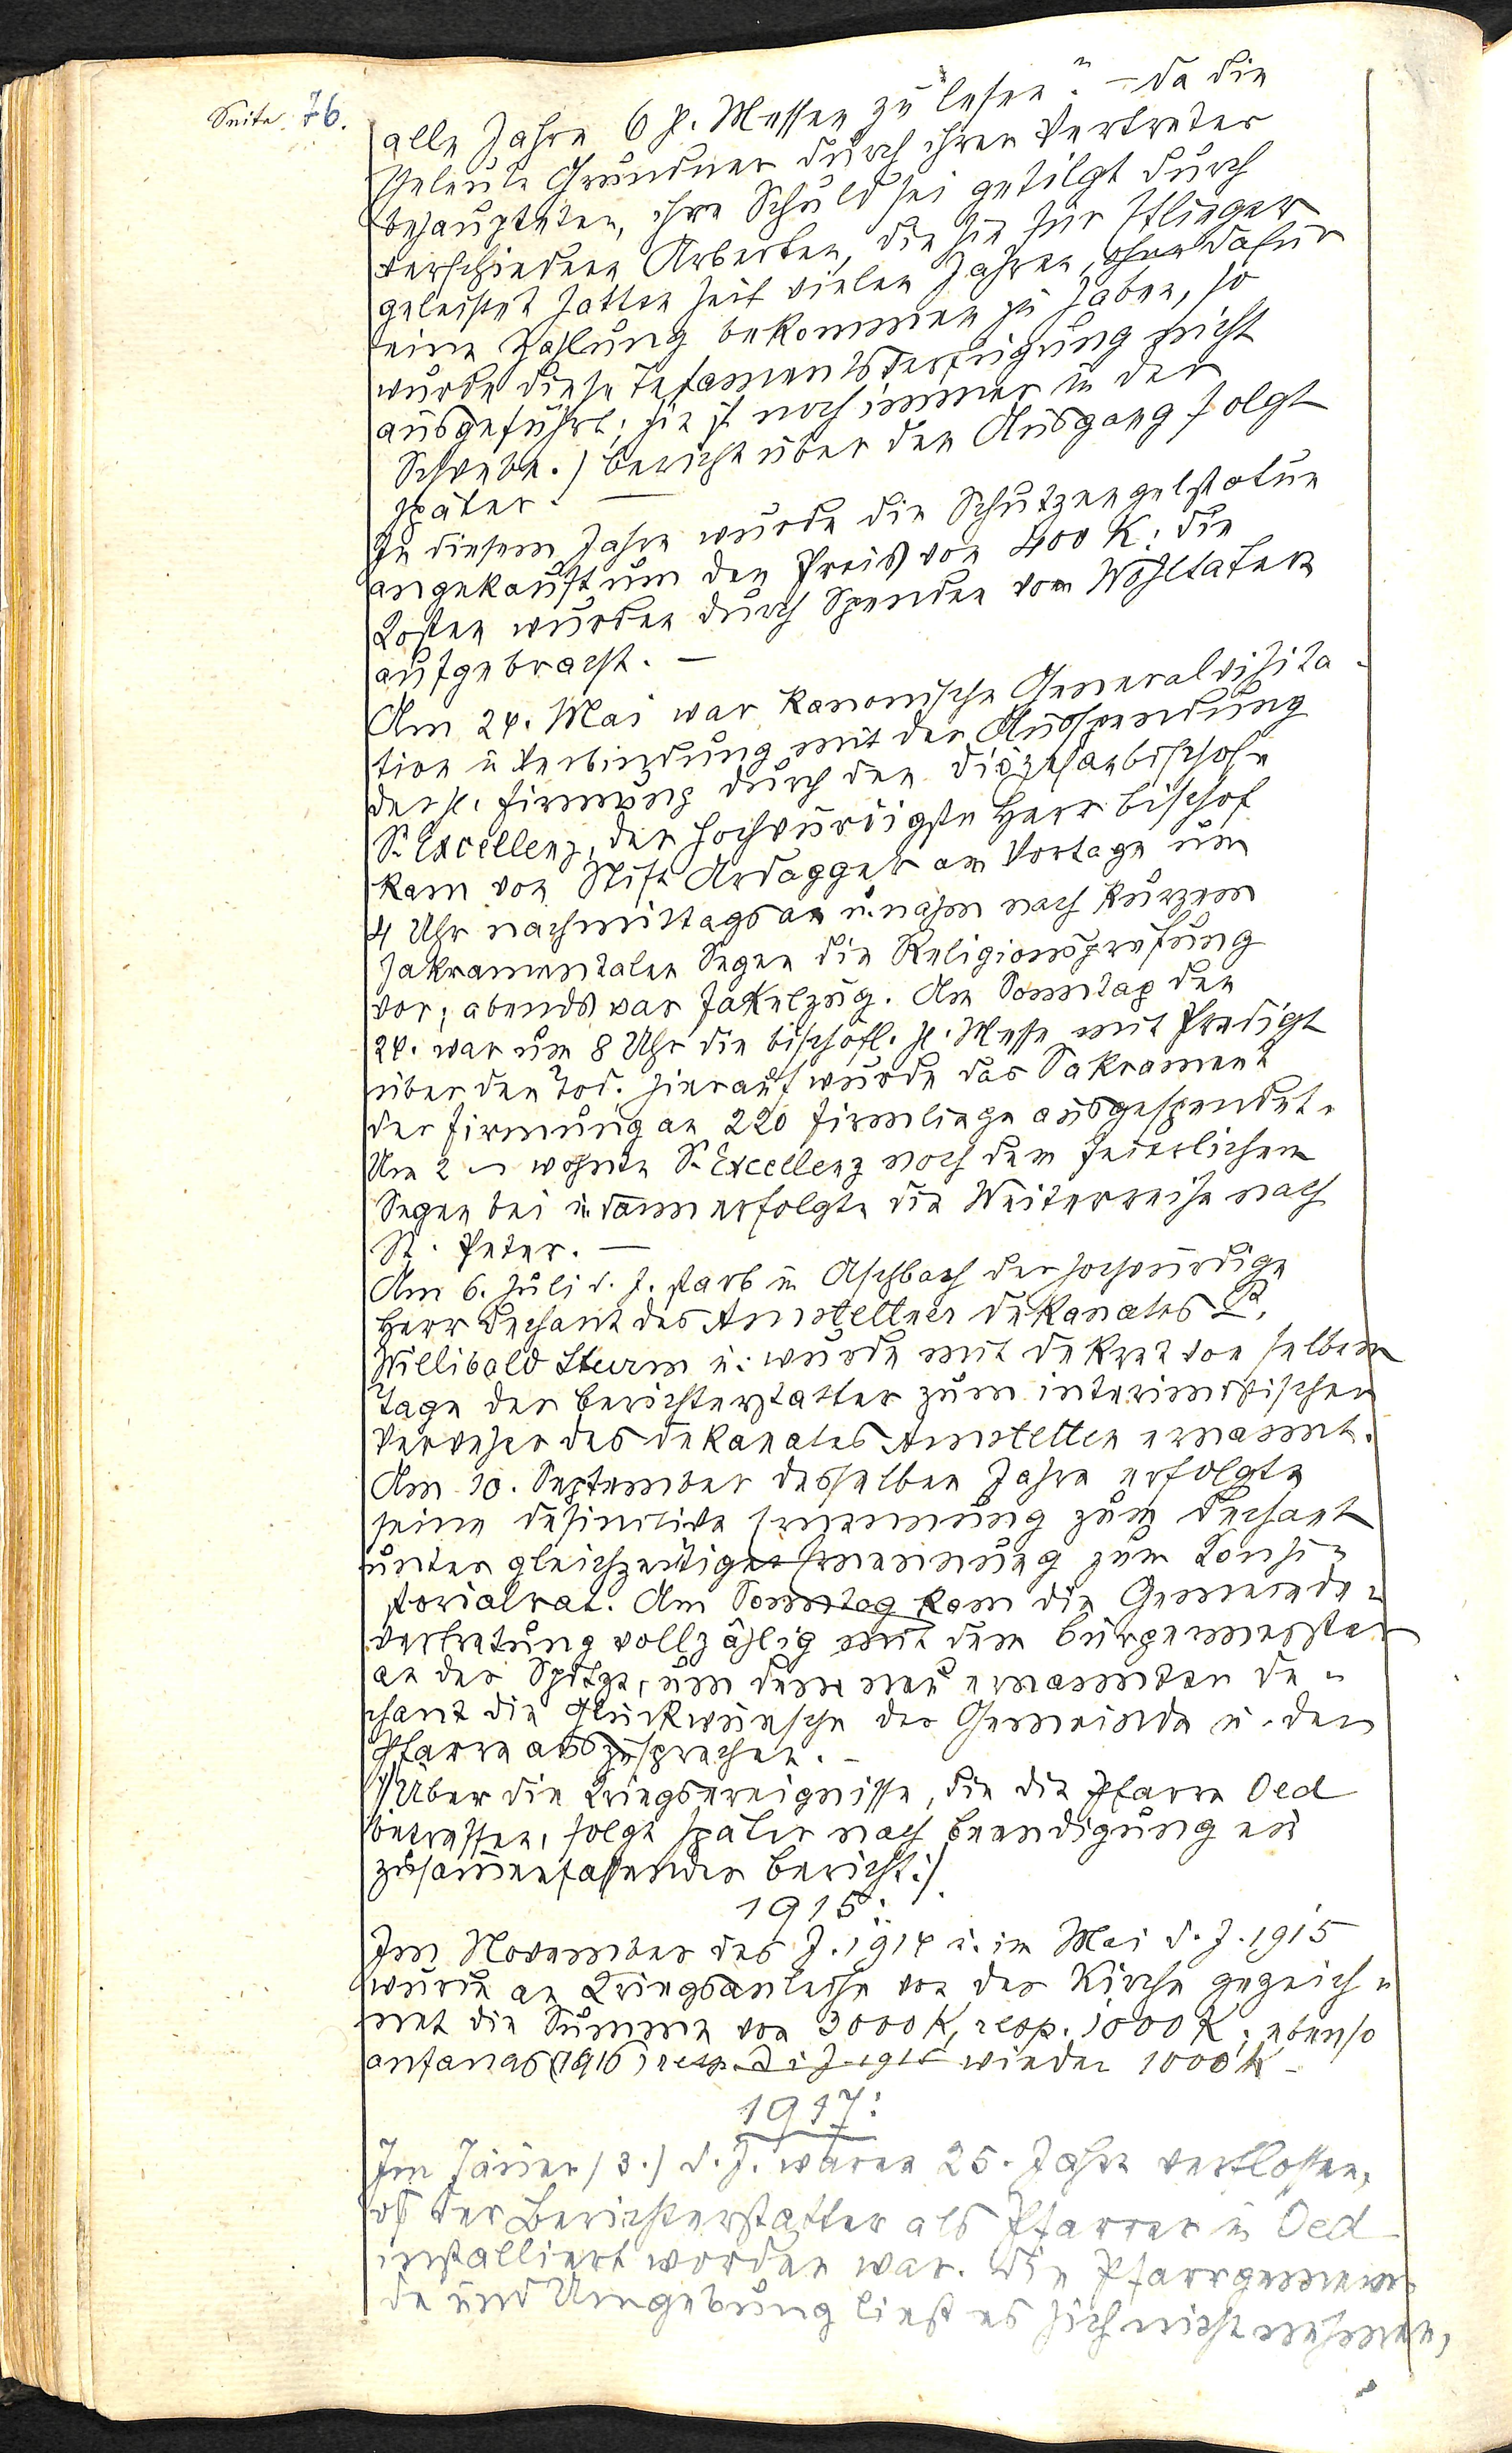 Seite 76.
alle Jahre 6 h. Messen zu lesen." – Da die
Eheleute Grundner durch ihren Vertreter
behaupteten, ihre Schuld sei getilgt durch
verschiedene Arbeiten, die sie für Pflieger
geleistet hatten seit vielen Jahren, ohne dafür
eine Zahlung bekommen zu haben, so
wurde diese Testamentsverfügung nicht
ausgeführt; sie ist noch immer in der
Schwebe.) Bericht über den Ausgang folgt
später. –
In diesem Jahre wurde die Schutzengelstatue
angekauft um den Preis von 400 K; die
Kosten wurden durch Spenden von Wohltätern
aufgebracht. –
Am 24. Mai war kanonische Generalvisita-
tion in Verbindung mit der Ausspendung
der hl. Firmung durch den Diözesanbischofe
Sr. Excellenz, der hochwürdigste Herr Bischof
kam von Stift Ardagger am Vortage um
4 Uhr nachmittags an u. nahm nach kurzem
sakramentalen Segen die Religionsprüfung
vor; abends war Fakelzug. Am Sonntag den
24. war um 8 Uhr die bischöfl. hl. Messe mit Predigt
über den Tod. Hierauf wurde das Sakrament
der Firmung an 220 Firmlinge ausgespendet.
Um 2 h wohnte Sr. Excellenz noch dem feierlichen
Segen bei u. dann erfolgte die Weiterreise nach
St. Peter. –
Am 6. Juli d. J. starb in Aschbach der hochwürdige
Herr Dechant des Amstettner Dekanates P.
Willibald Sturm u. wurde mit Dekret von selbem
Tage der Berichterstatter zum interimistischen
Verweser des Dekanates Amstetten ernannt.
Am 10. September desselben Jahre erfolgte
seine definitive Ernennung zum Dechant
unter gleichzeitiger Ernennung zum Konsi-
storialrat. Am Sonntag kam die Gemeinde-
vertretung vollzählig mit dem Bürgermeister
an der Spitze, um dem neu ernannten De-
chant die Glückwünsche der Gemeinde u. der
Pfarre auszusprechen. –
/: Über die Kriegsereignisse, die die Pfarre Oed
betreffen, folgt später nach Beendigung ein
zusammenfassender Bericht :/
1915:
Im November des J. 1914 u. im Mai d. J. 1915
wurde an Kriegsanleihe von der Kirche gezeich-
net die Summe von 3000 K, resp. 1000 K; ebenso
anfangs (1916) resp. d. J. 1915 wieder 1000 K –
1917:
Im Jäner (3.) d. J. waren 25. Jahre verflossen,
daß der Berichterstatter als Pfarrer in Oed
installiert worden war. Die Pfarrgemein-
de und Umgebung ließ es sich nicht nehmen,